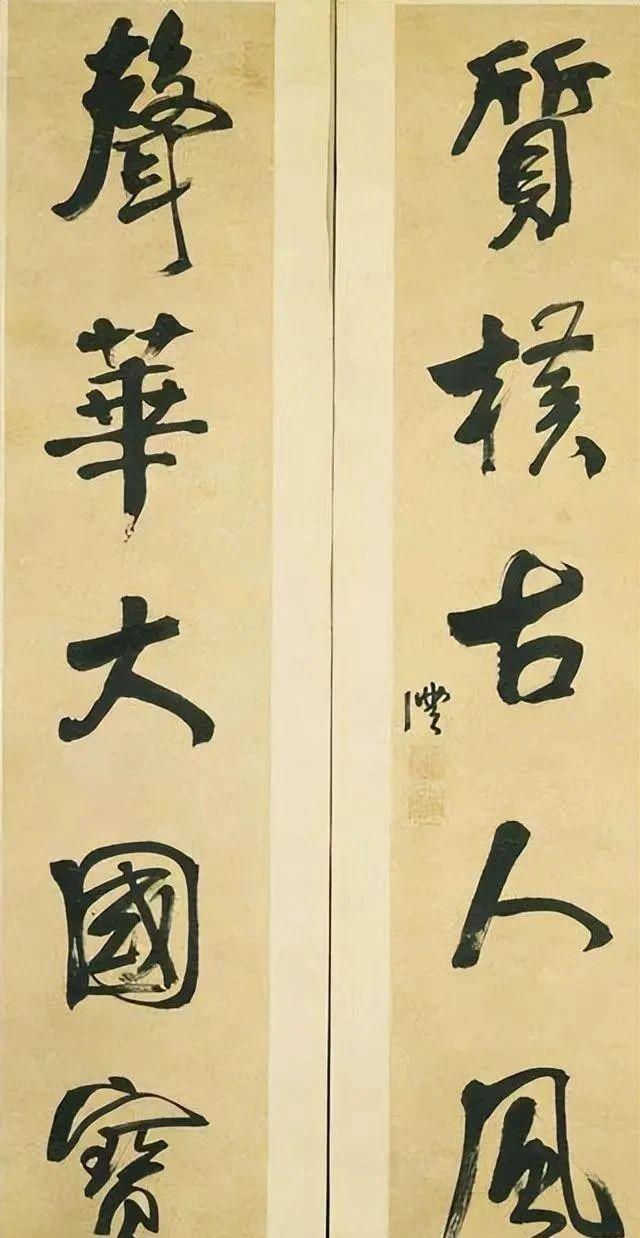 質樸古人風
聲華大國寶